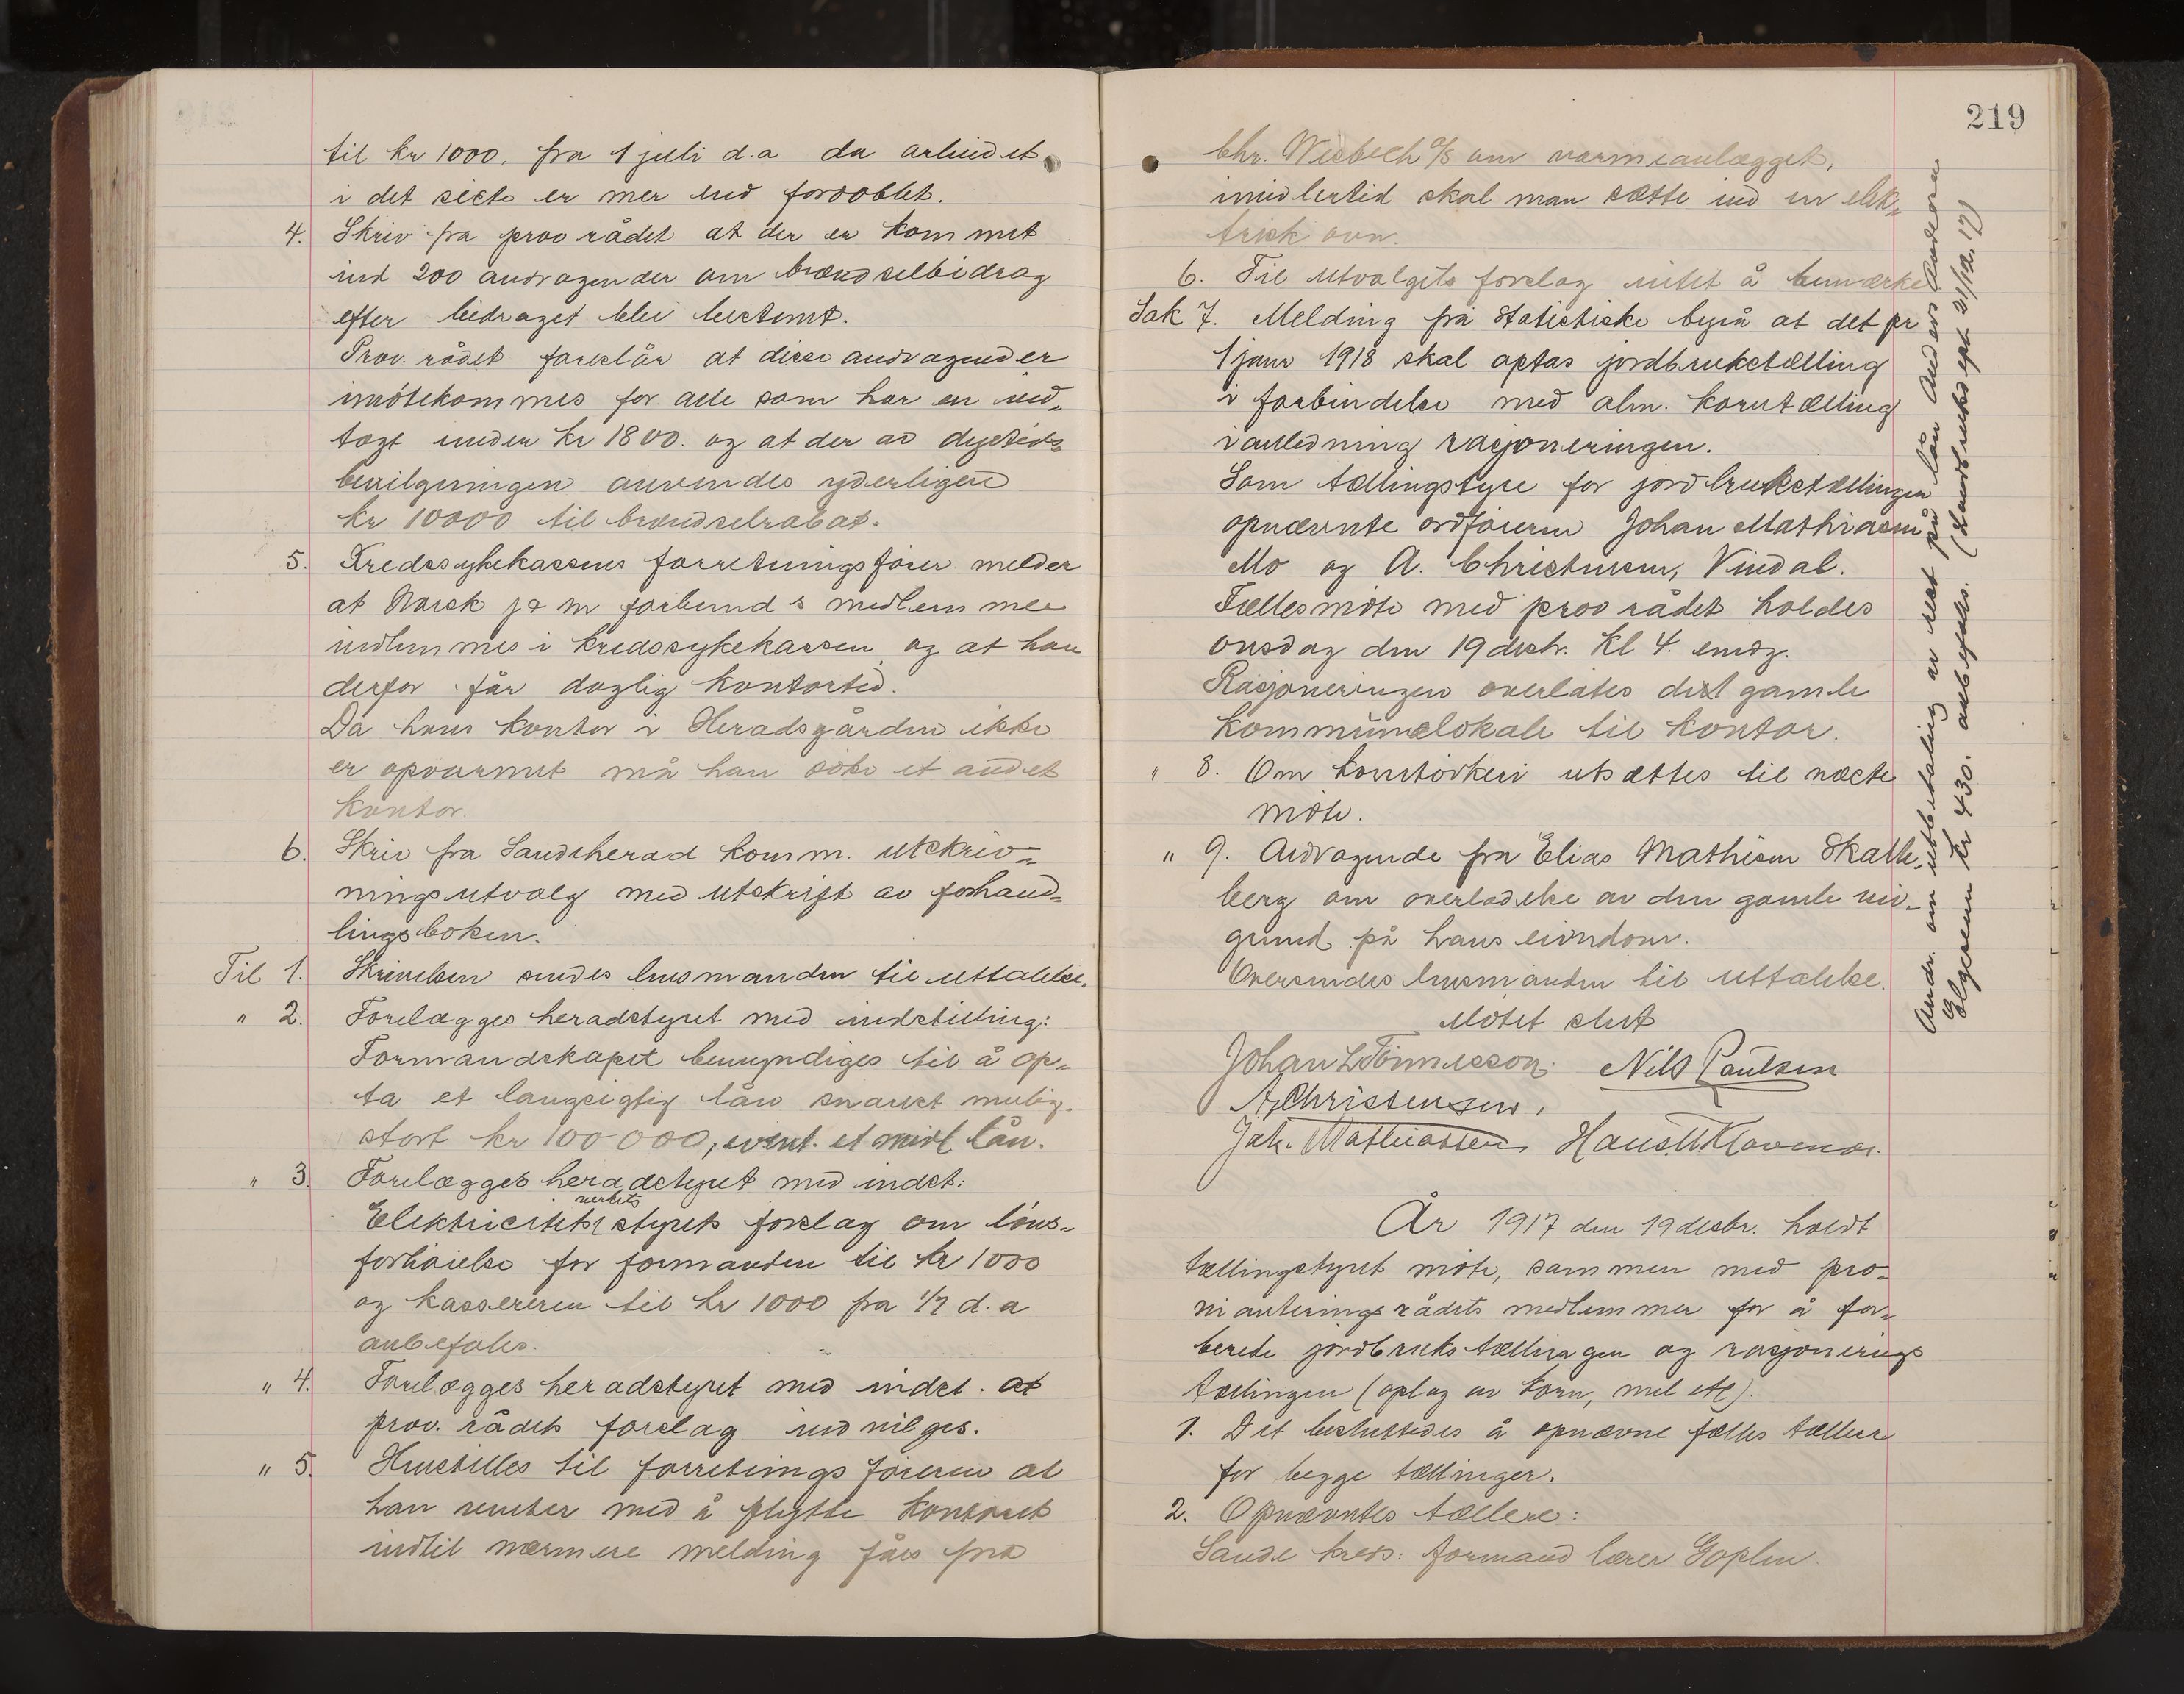 til kr 1000. fra 1 juli d.a da arbeidet
i det siste er mer end fordoblet.
4. Skriv fra prov rådet at der er kommet
ind 200 andragender om brændselbidrag
efter bidraget blev bestemt.
Prov. rådet foreslår at disse andragender
imøtekommes for alle som har en ind-
tægt under kr 1800. og at der av dyrtids-
bevilgningen anvendes yderligere
kr 10000 til brændselrabat.
5. Kredssykekassens forretningsfører melder
at Norsk j & m forbunds medlemmer
indlemmes i kredssykekassen og at han
derfor får daglig kontortid.
Da hans kontor i Heradsgården ikke
er opvarmet må han söke et andet
kontor.
6. Skriv fra Sandeherad komm. utskriv-
ningsutvalg med utskrift av forhand-
lingsboken.
Til 1. Skrivelsen sendes lensmanden til uttalelse.
" 2. Forelægges heradstyret med indstilling:
Formandskapet bemyndiges til å op-
ta et langsigtig lån snarest mulig.
stort kr 100000, event. et midl lån.
" 3. Forelægges heradstyret med indst:
verkets
Elektricitets styrets forslag om löns-
forhöielse for formanden til kr 1000
og kassereren til kr 1000 fra 1/7 d.a
anbefales.
" 4. Forelægges heradstyret med indst. at
prov. rådets forslag indvilges.
" 5. Henstilles til forretningsföreren at
han venter med å flytte kontoret
indtil nærmere melding fåes fra
219
Chr. Wisbech A/S om varmeanlægget,
imidlertid skal man sætte ind en elek-
trisk ovn.
6. Til utvalgets forslag intet å bemærke
Sak 7. Melding fra Statistiske byrå at det pr
1 janr 1918 skal optas jordbrukstælling
i forbindelse med alm. korntælling
i anledning rasjoneringen.
Som tællingstyre for jordbrukstællingen
opnævnte ordföreren Johan Mathiasen
Mo og A. Christensen, Vindal.
Fællesmöte med prov rådet holdes
onsdag den 19 desbr. Kl 4. emdg.
Rasjoneringen overlates det gamle
kommunelokale til kontor.
" 8. Om korntörkeri utsættes til næste
möte.
" 9. Andragende fra Elias Mathisen Skalle-
berg om overladelse av den gamle vei-
grund på hans eiendom.
Oversendes lensmanden til uttalelse.
Mötet slut
Johan L Tönnesson. Nils Paulsen
A Christensen,
Jak. Mathiassen Hans M Klavenes.
År 1917 den 19 desbr. holdt
tællingstyret möte, sammen med pro-
vianteringsrådets medlemmer for å for-
berede jordbrukstællingen og rasjonerings
tællingen (oplag av korn, mel etc).
1. Det besluttedes å opnævne fælles tællere
for begge tællinger.
2. Opnævntes tællere:
Sande kreds: formand lærer Goplen.
Andr. om utbetaling av rest på lån Anders Andersen
Elgesem kr 430. anbefales. (Landbruksept 21/12. 17)